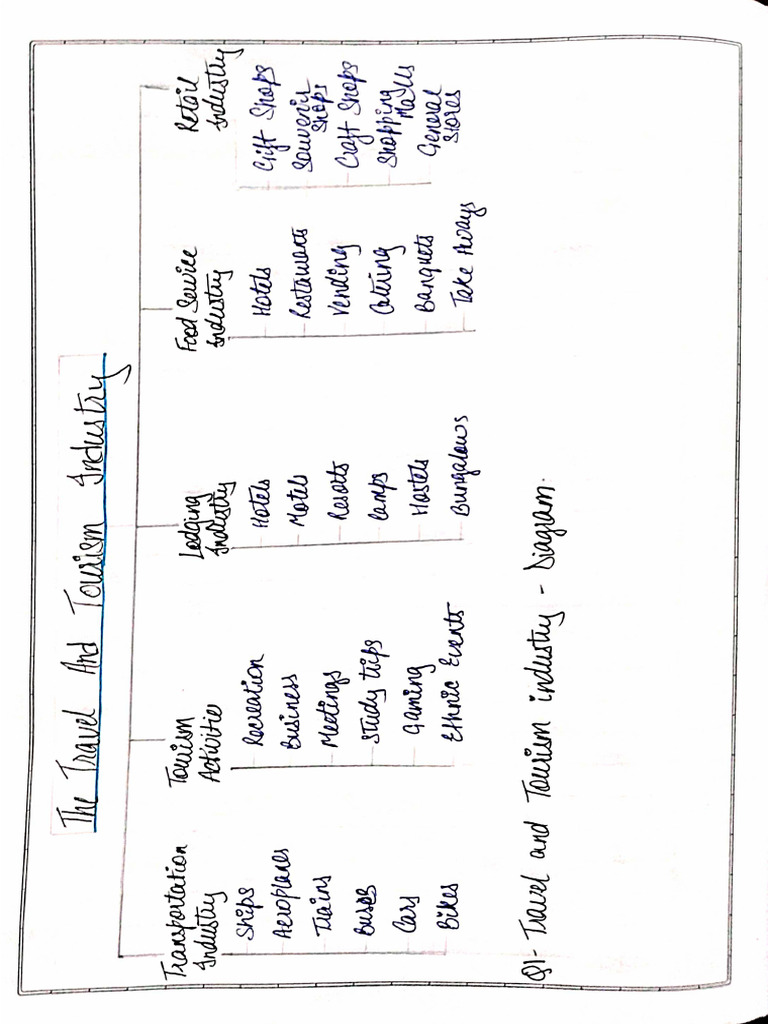 The Travel And Tourism Industry
Transportation
Industry
Ships
Aeroplanes
Trains
Buses
Cars
Bikes
Tourism
Activities
Recreation
Business
Meetings
Study trips
Gaming
Ethnic Events
Lodging
Industry
Hotels
Motels
Resorts
Camps
Hostels
Bungalows
Food Service
Industry
Hotels
Restaurants
Vending
Catering
Banquets
Take Aways
Retail
Industry
Gift Shops
Souvenir
Shops
Craft Shops
Shopping
Malls
General
Stores
Q1- Travel and Tourism industry - Diagram.